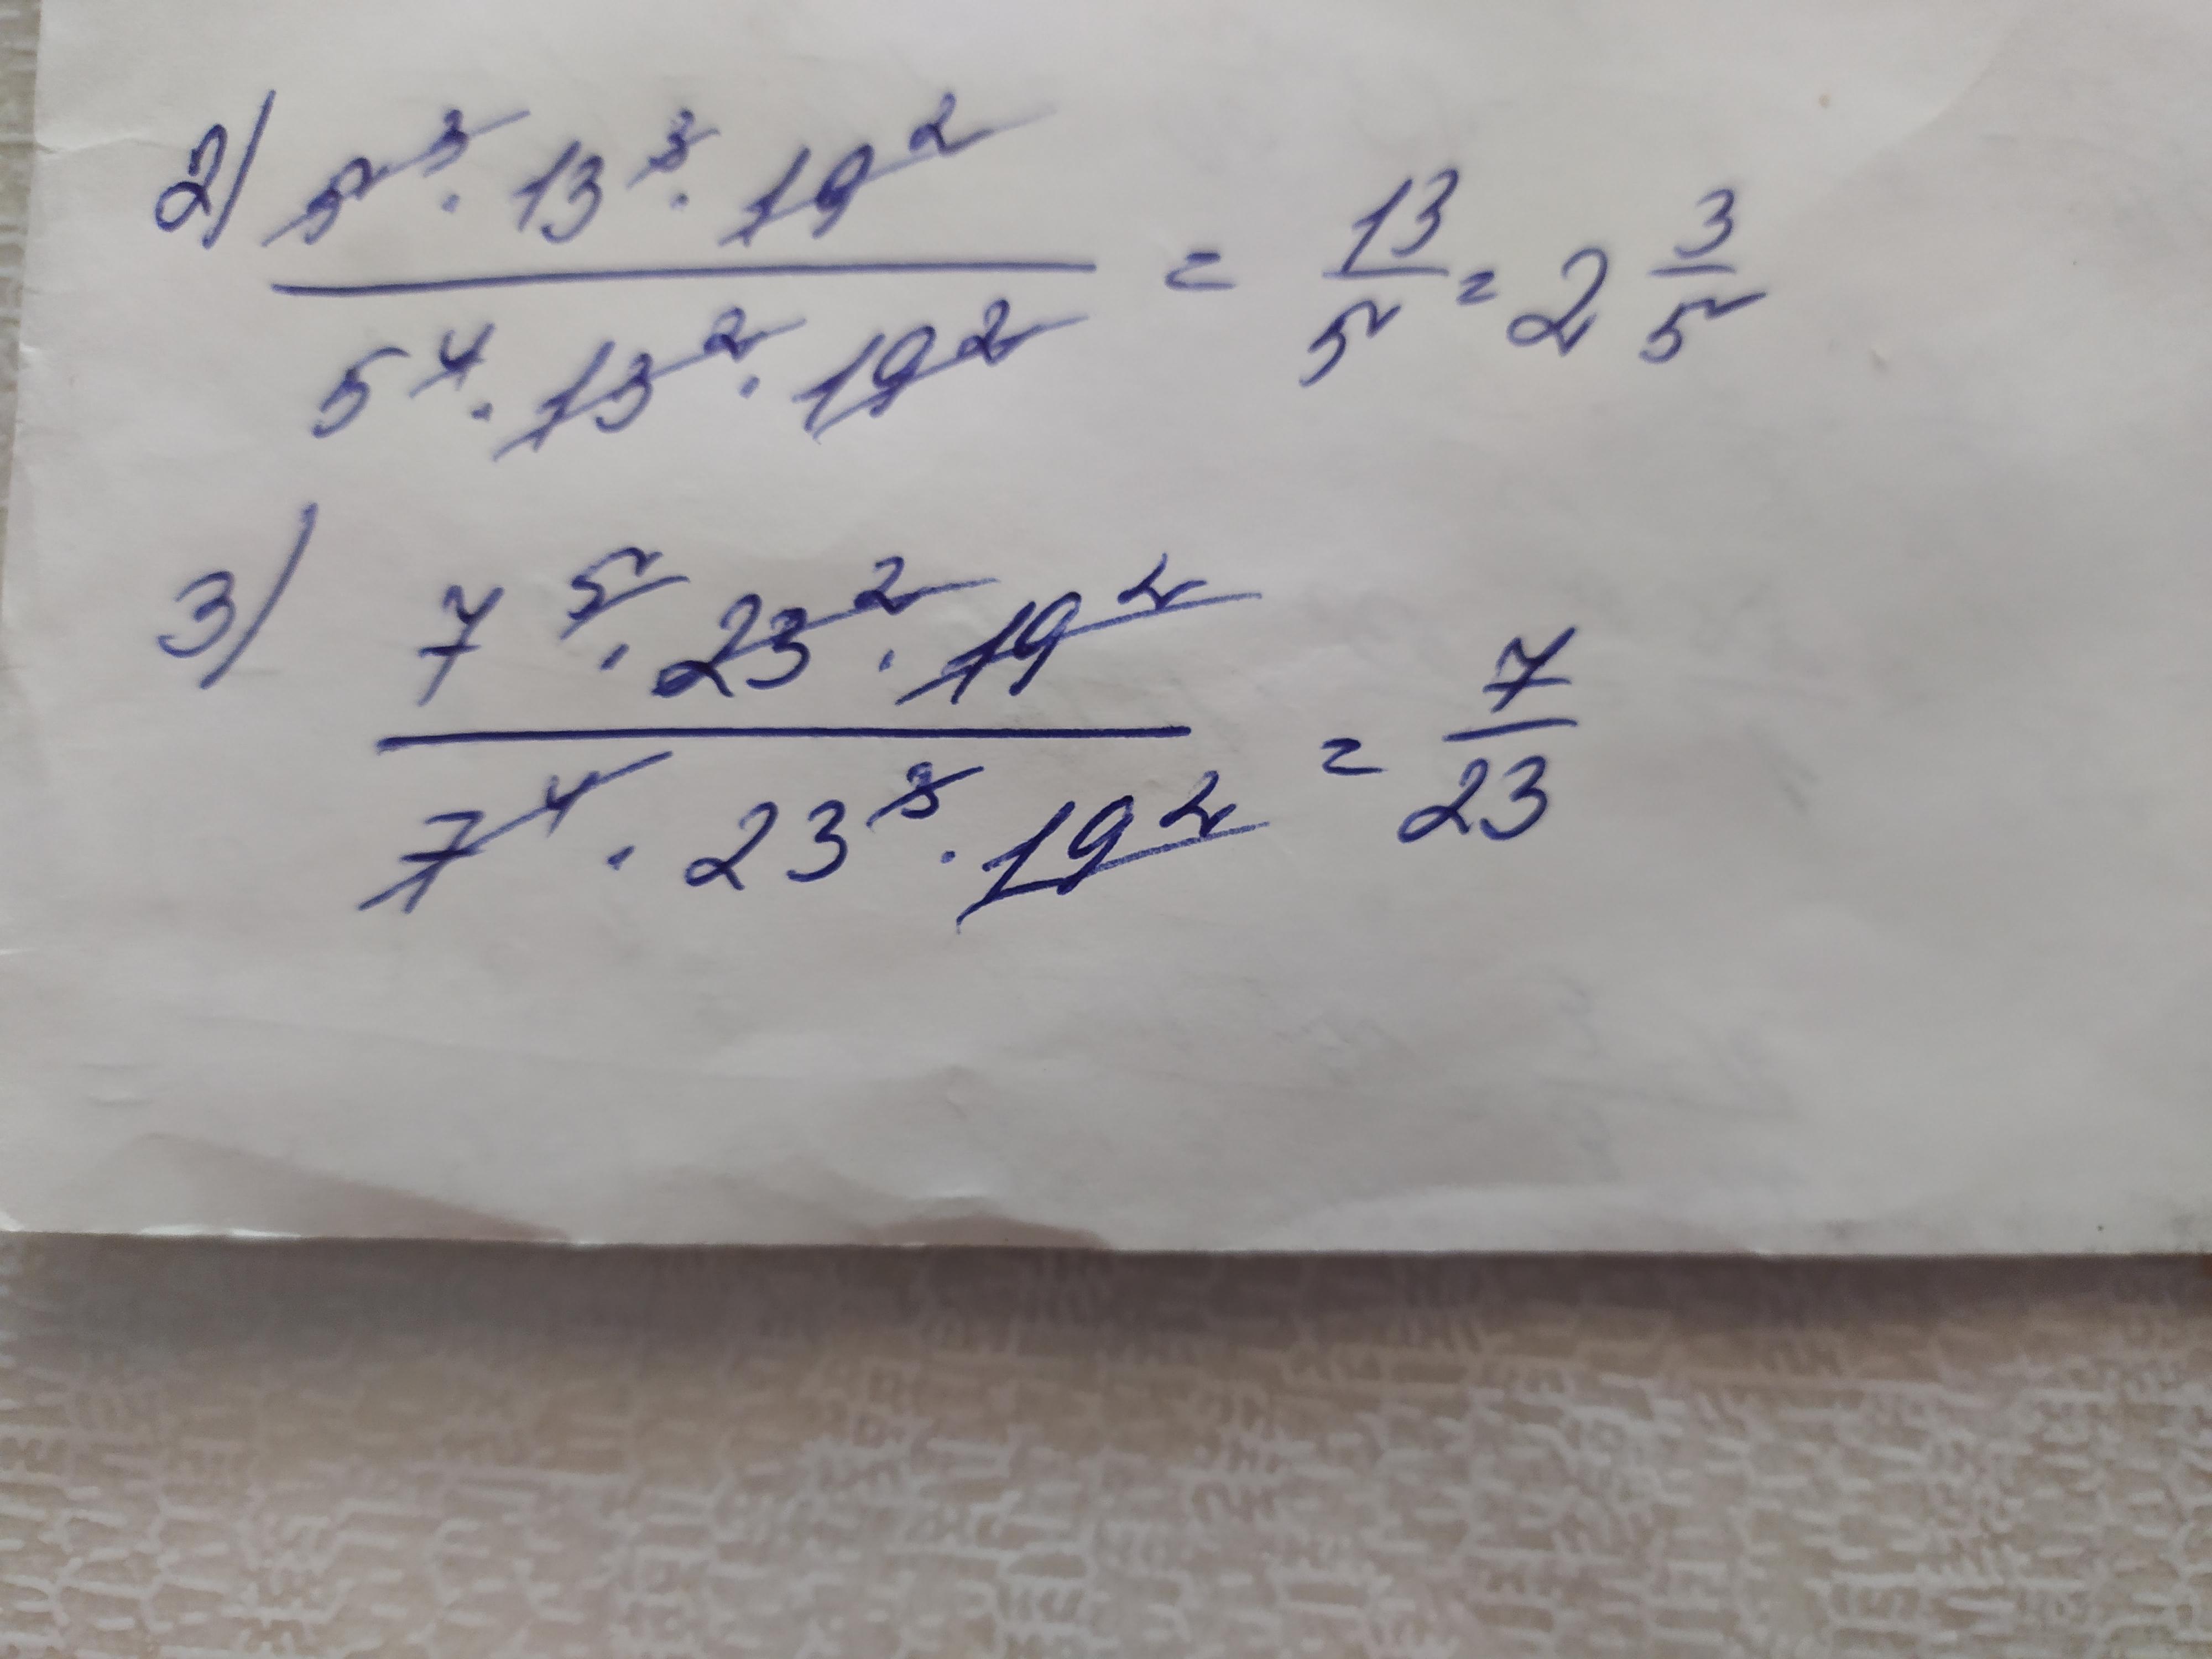 2) 5³ · 13³ · 19² / 5⁴ · 13² · 19² = 13/5 = 2 3/5
3) 7⁵ · 23² · 19² / 7⁴ · 23³ · 19² = 7/23